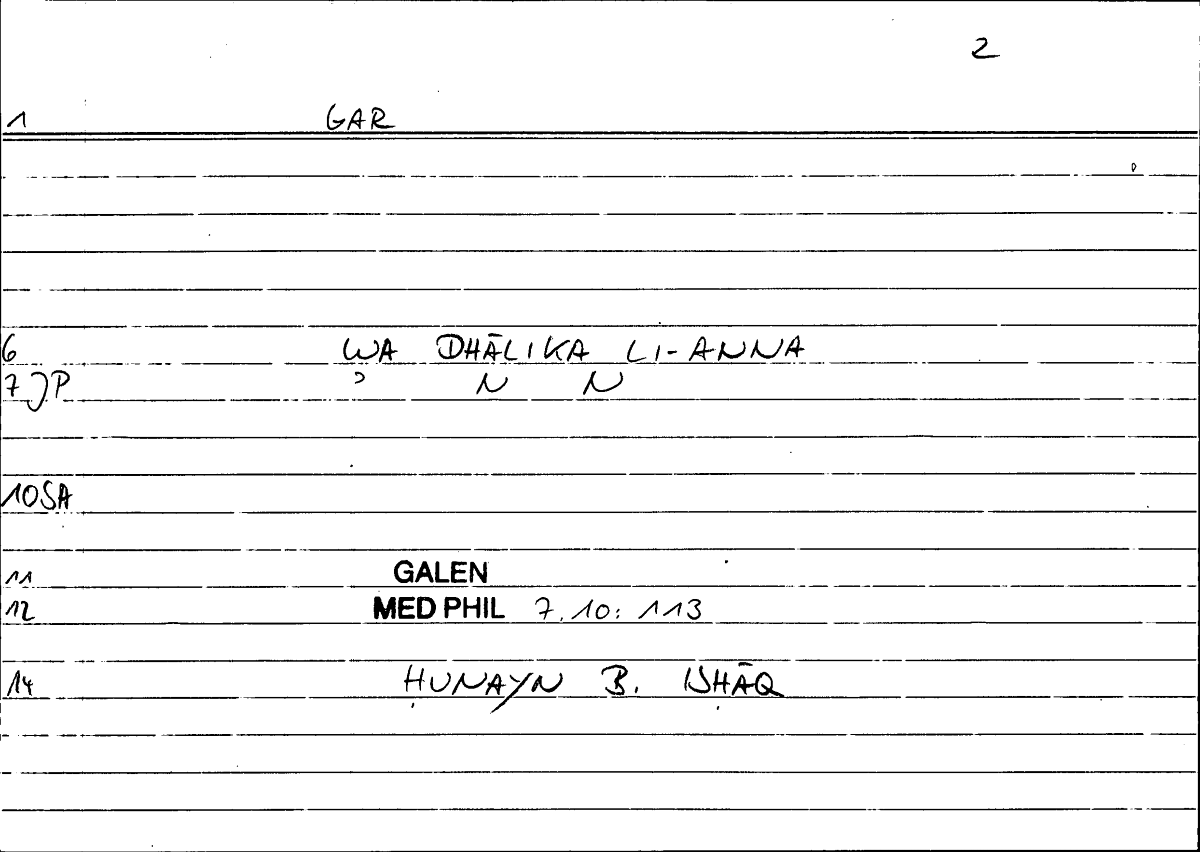 2
1 GAR
6 WA DHĀLIKA LI-ANNA
7 JP ʾ N N
10 SA
11 GALEN
12 MED PHIL 7.10: 113
14 ḤUNAYN B. ISḤĀQ